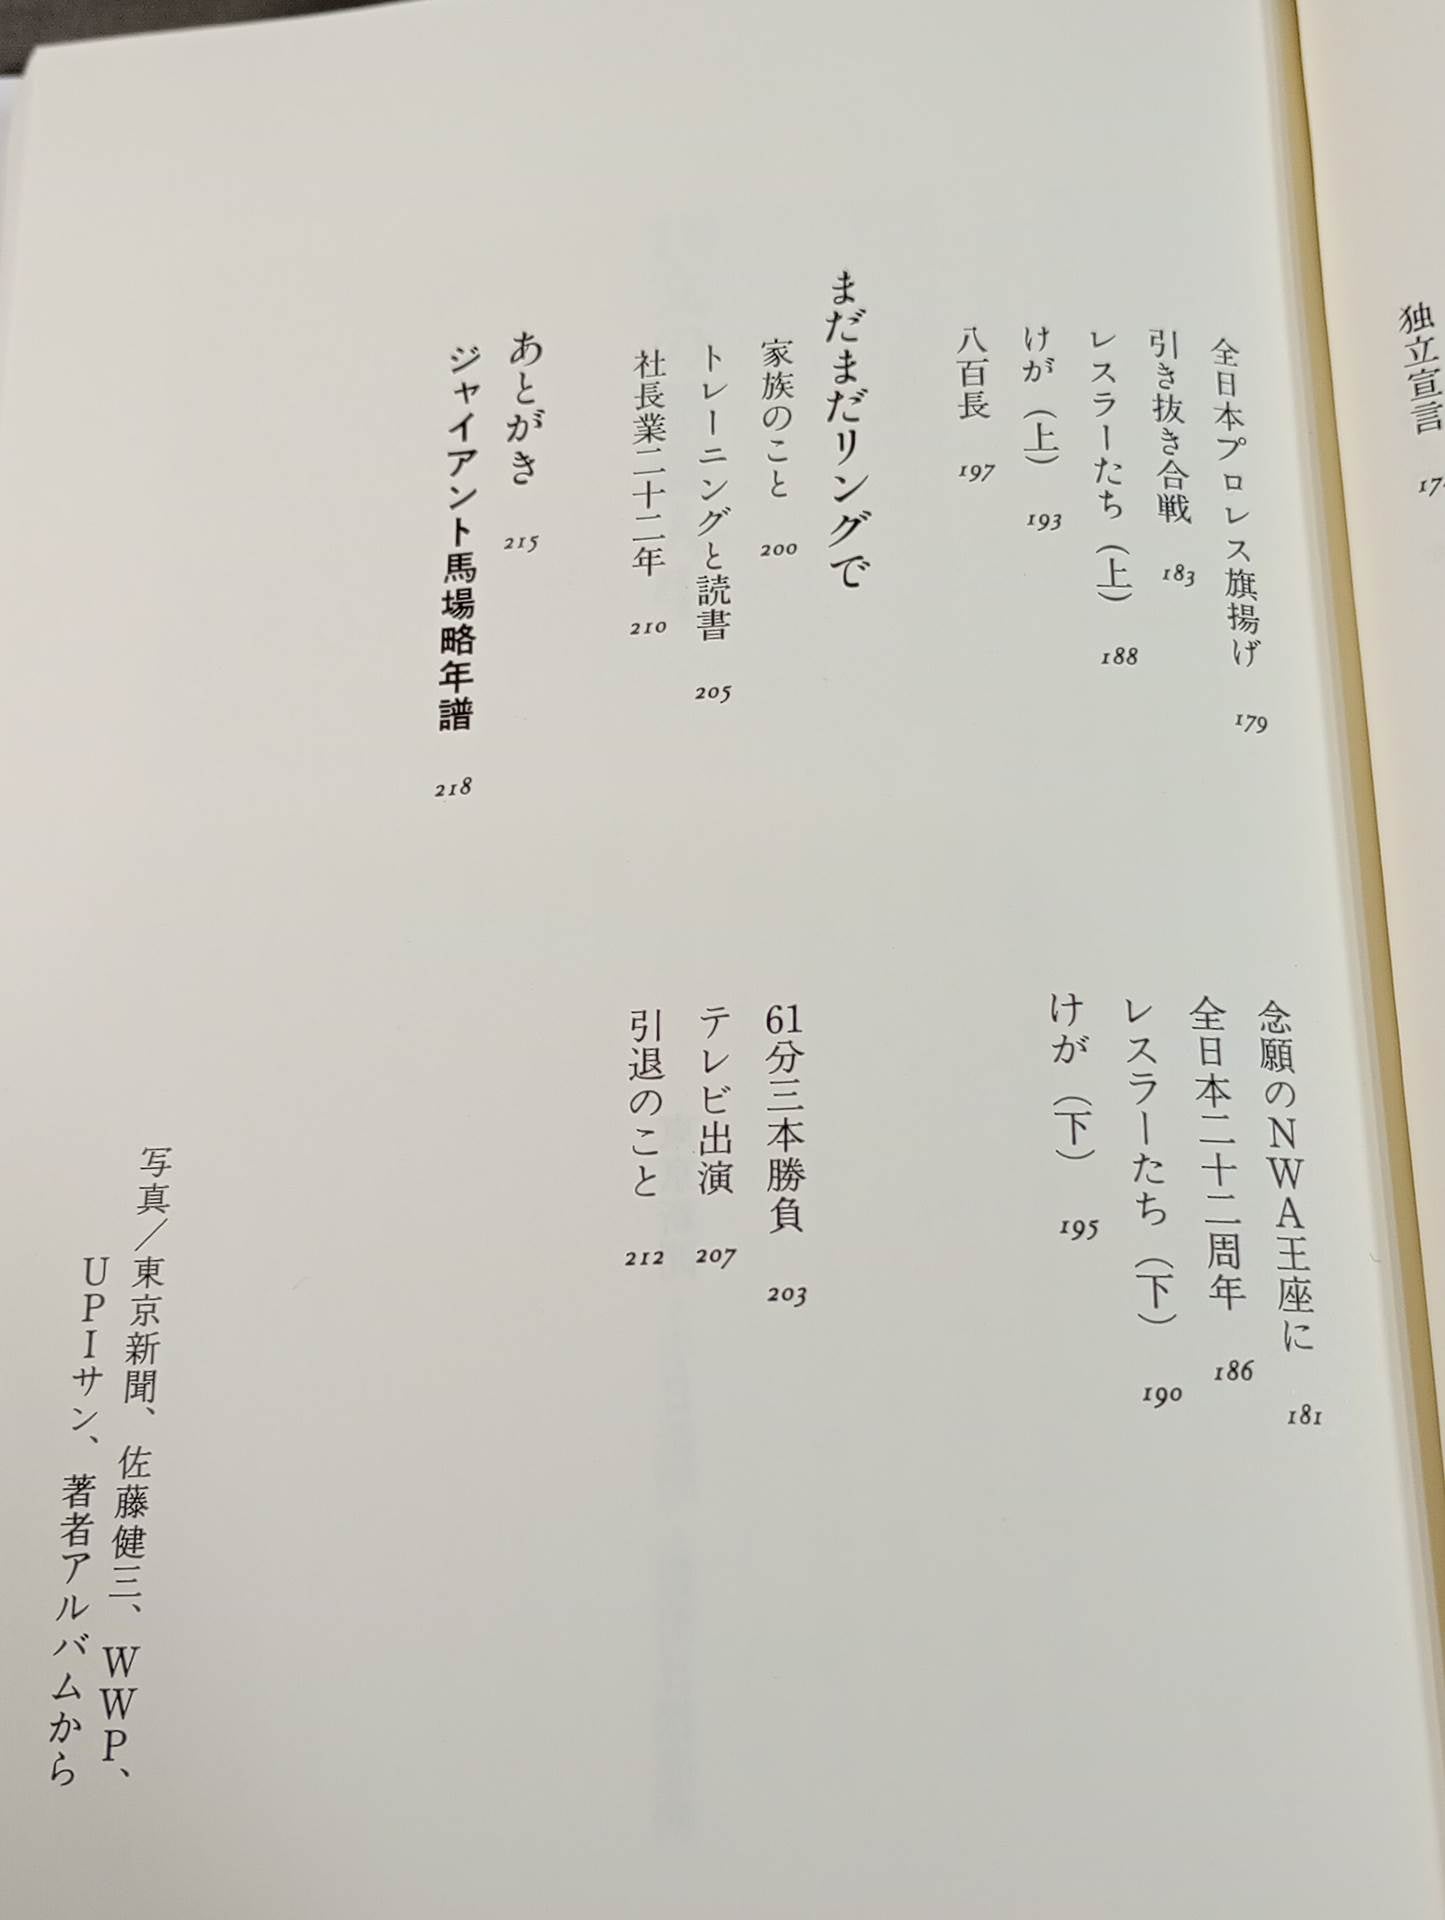 独立宣言
全日本プロレス旗揚げ 179
念願のNWA王座に 181
引き抜き合戦 183
全日本二十二周年 186
レスラーたち（上） 188
レスラーたち（下） 190
けが（上） 193
けが（下） 195
八百長 197
まだまだリングで
家族のこと 200
61分三本勝負 203
トレーニングと読書 205
テレビ出演 207
社長業二十二年 210
引退のこと 212
あとがき 215
ジャイアント馬場略年譜 218
写真／東京新聞、佐藤健三、WWP、
UPIサン、著者アルバムから